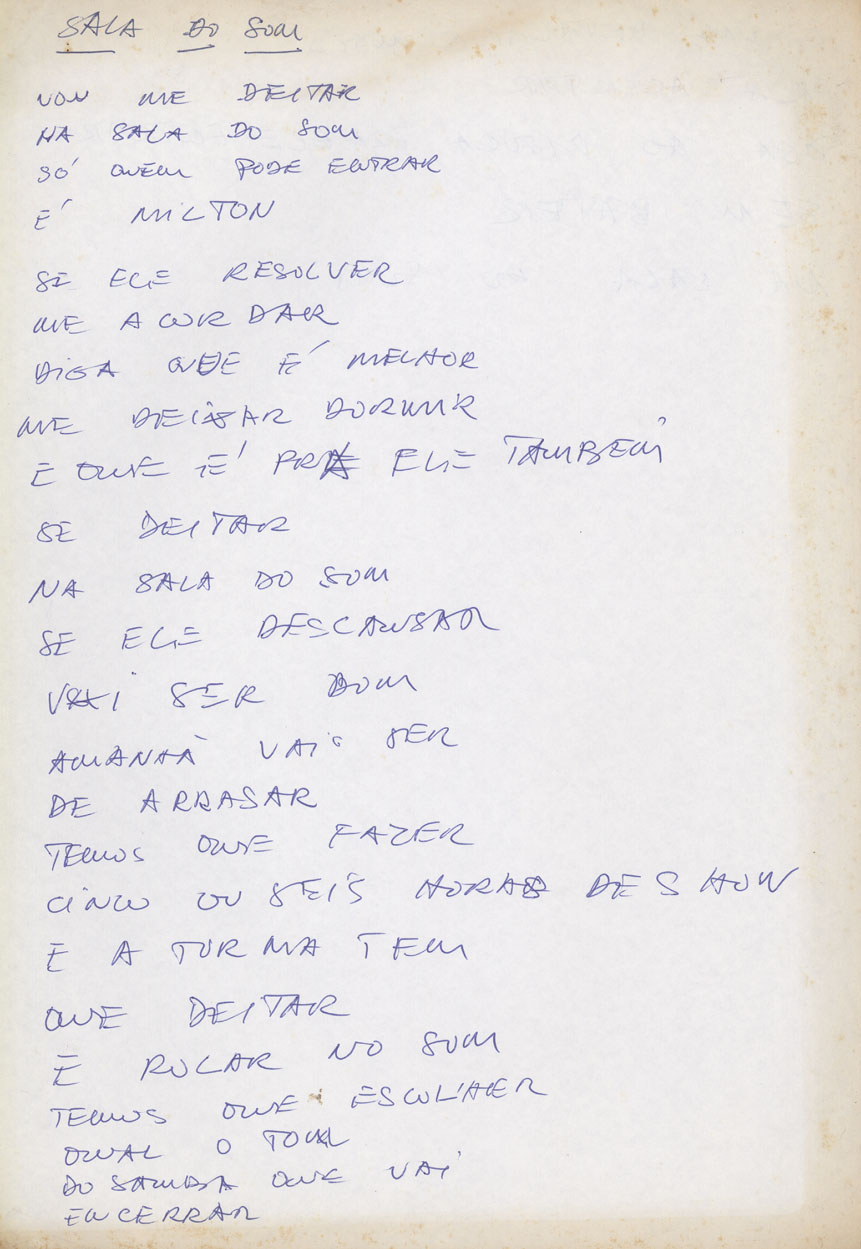 SALA DO SOM
VOU ME DEITAR
NA SALA DO SOM
SÓ QUEM PODE ENTRAR
É MILTON
SE ELE RESOLVER
ME ACORDAR
DIGA QUE É MELHOR
ME DEIXAR DORMIR
E QUE É PRA ELE TAMBÉM
SE DEITAR
NA SALA DO SOM
SE ELE DESCANSAR
VAI SER BOM
AMANHÃ VAI SER
DE ARRASAR
TEMOS QUE FAZER
CINCO OU SEIS HORAS DE SHOW
E A TURMA TEM
QUE DEITAR
E ROLAR NO SOM
TEMOS QUE ESCOLHER
QUAL O TOM
DO SAMBA QUE VAI
ENCERRAR